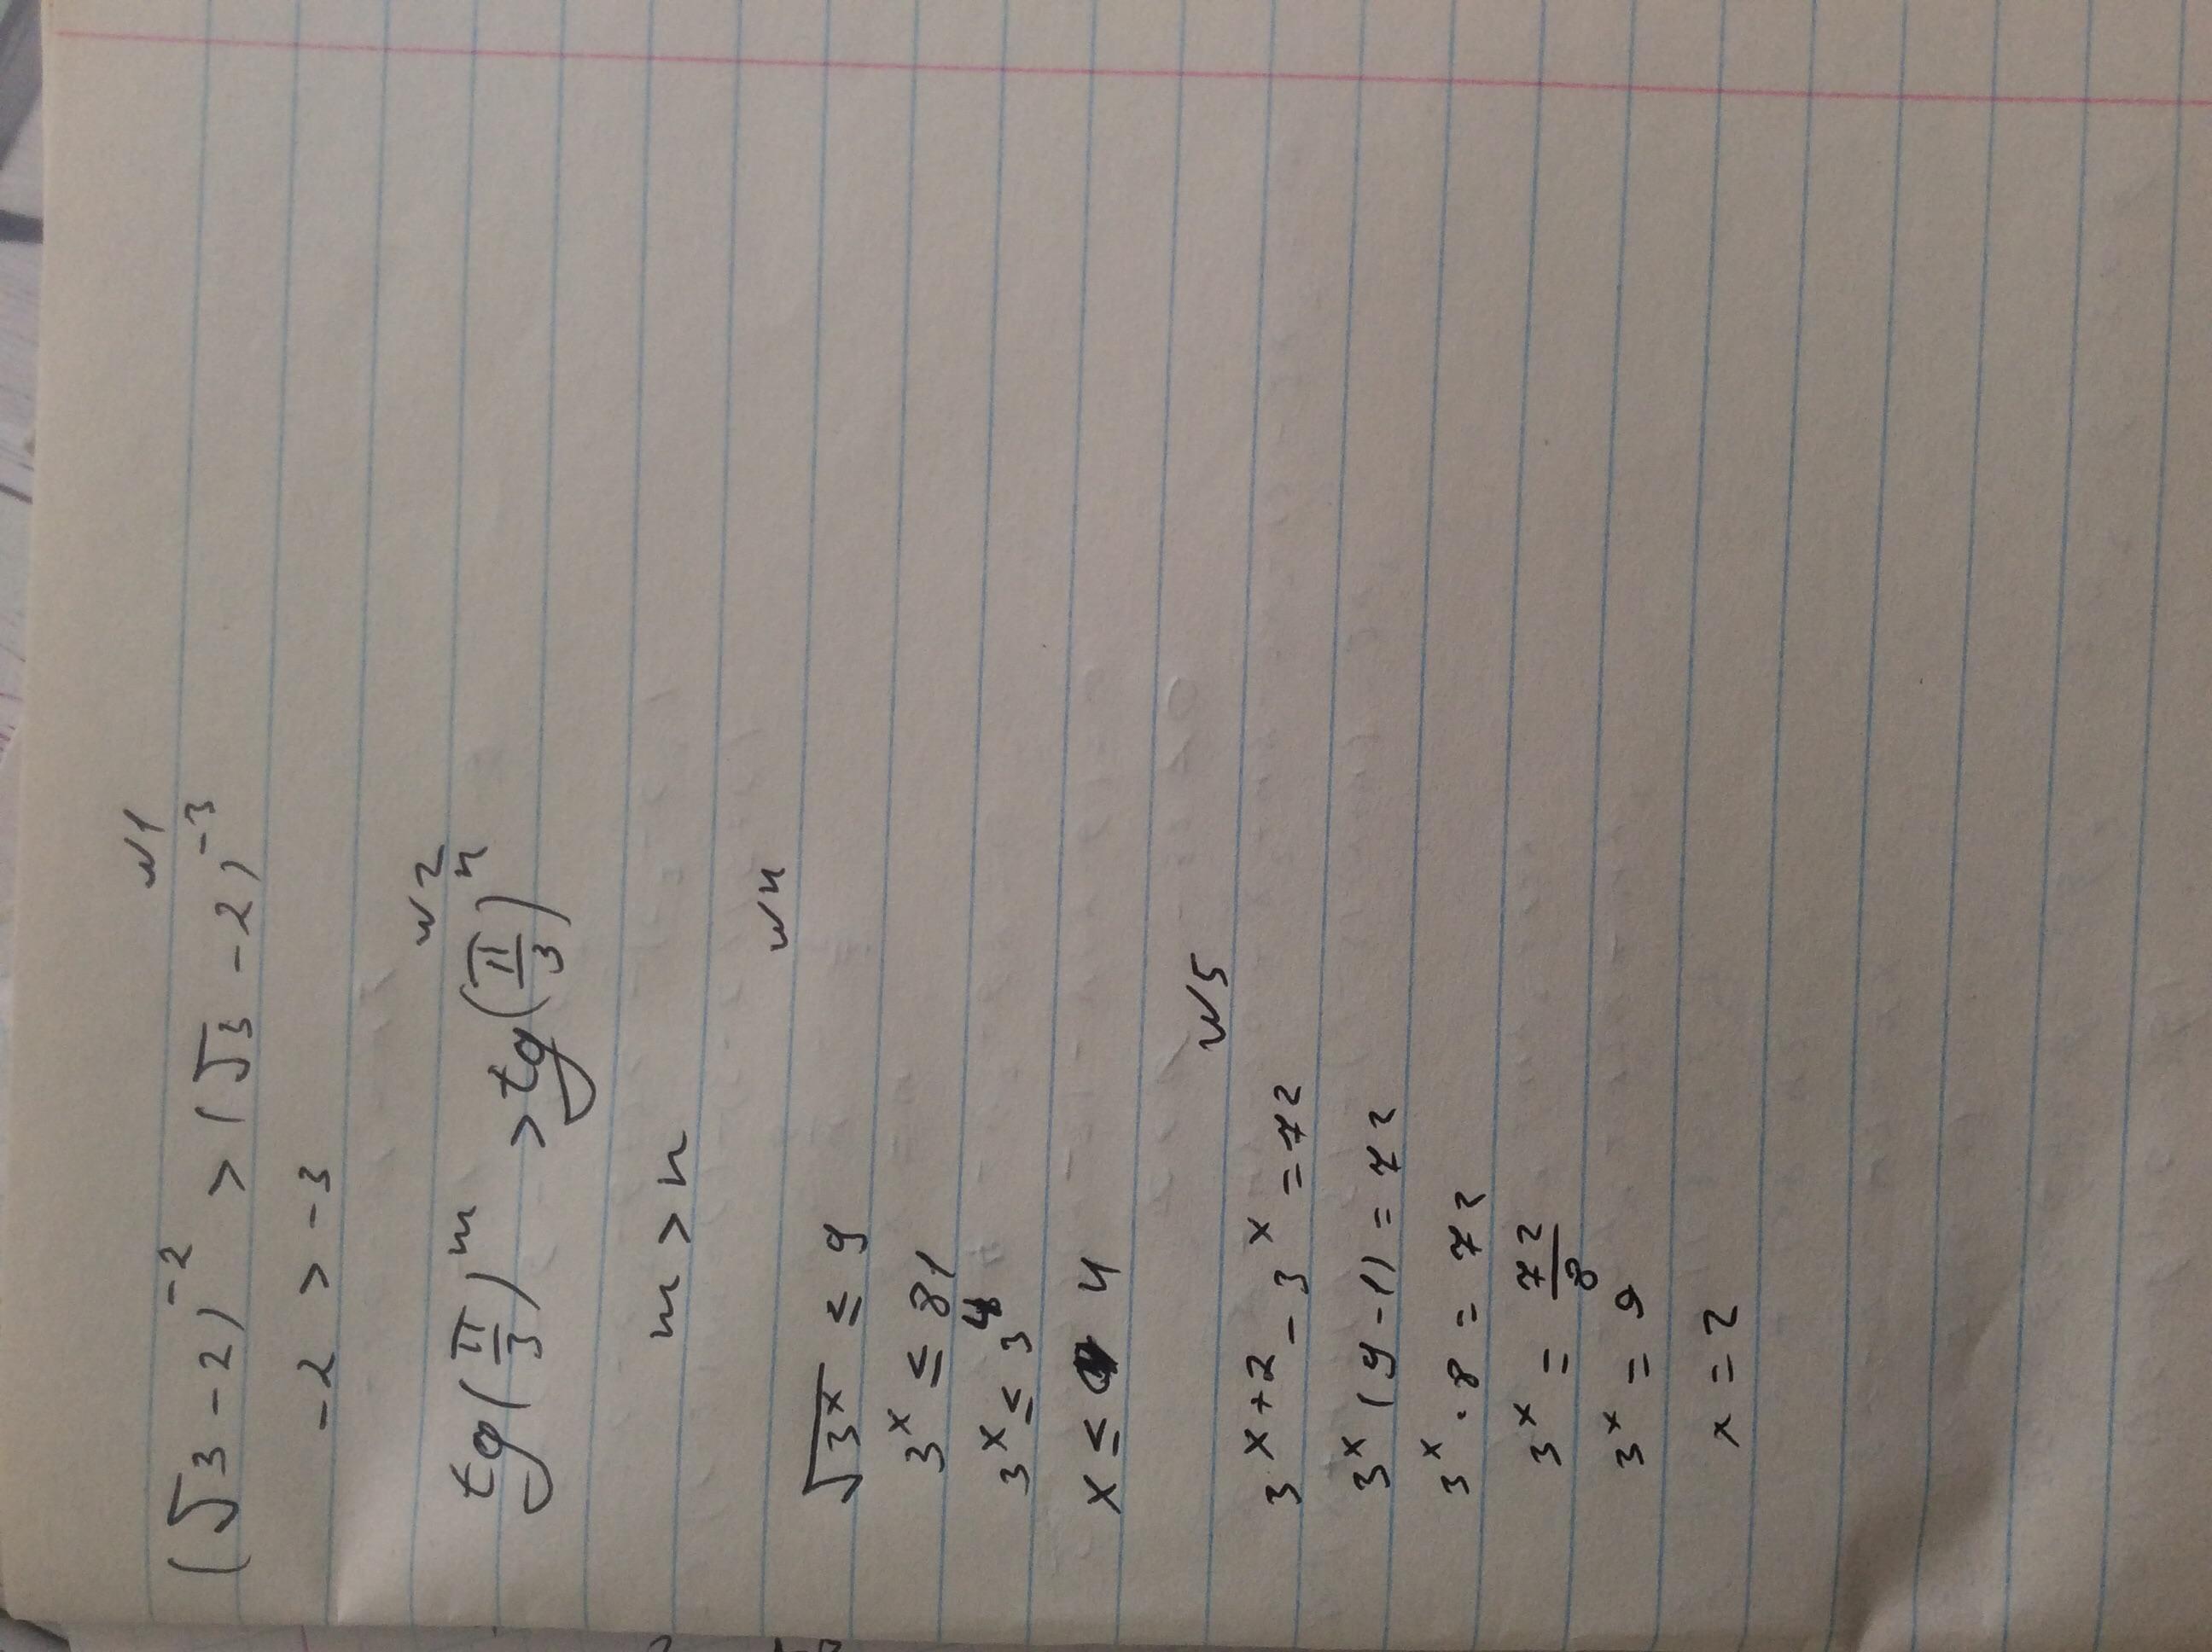 №1
(√3 - 2)⁻² > (√3 - 2)⁻³
-2 > -3
№2
tg(π/3)ᵐ > tg(π/3)ⁿ
m > n
№4
√3ˣ ≤ 9
3ˣ ≤ 81
3ˣ ≤ 3⁴
x ≤ 4
№5
3ˣ⁺² - 3ˣ = 72
3ˣ(9-1) = 72
3ˣ · 8 = 72
3ˣ = 72/8
3ˣ = 9
x = 2